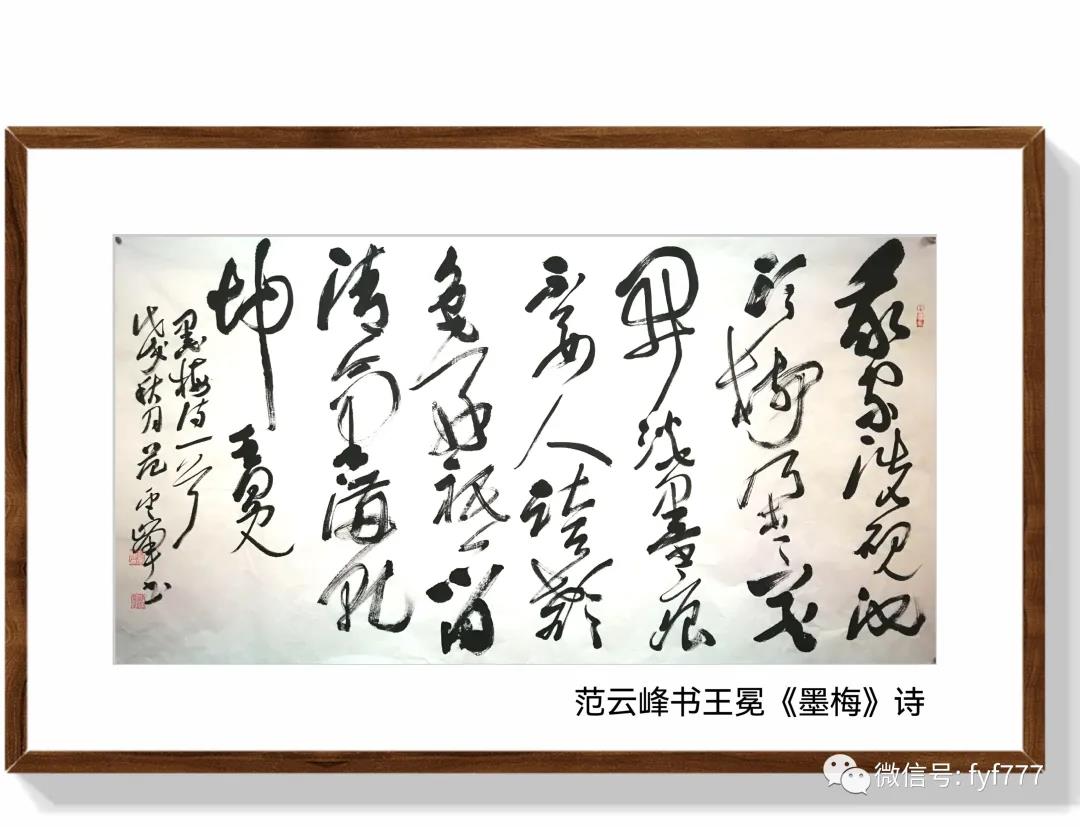 我家洗砚池
头树朵朵花
開淡墨痕
不要人誇颜
色好祗留
清氣满乾
坤 王冕
墨梅诗一首
戊戌秋月范云峰书
范云峰书王冕《墨梅》诗
微信号: fyf777